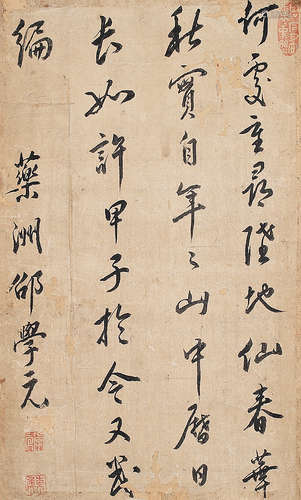 何處重尋陸地仙春華
秋實自年〻山中曆日
長如許甲子於今又幾
編
藥洲邵學元